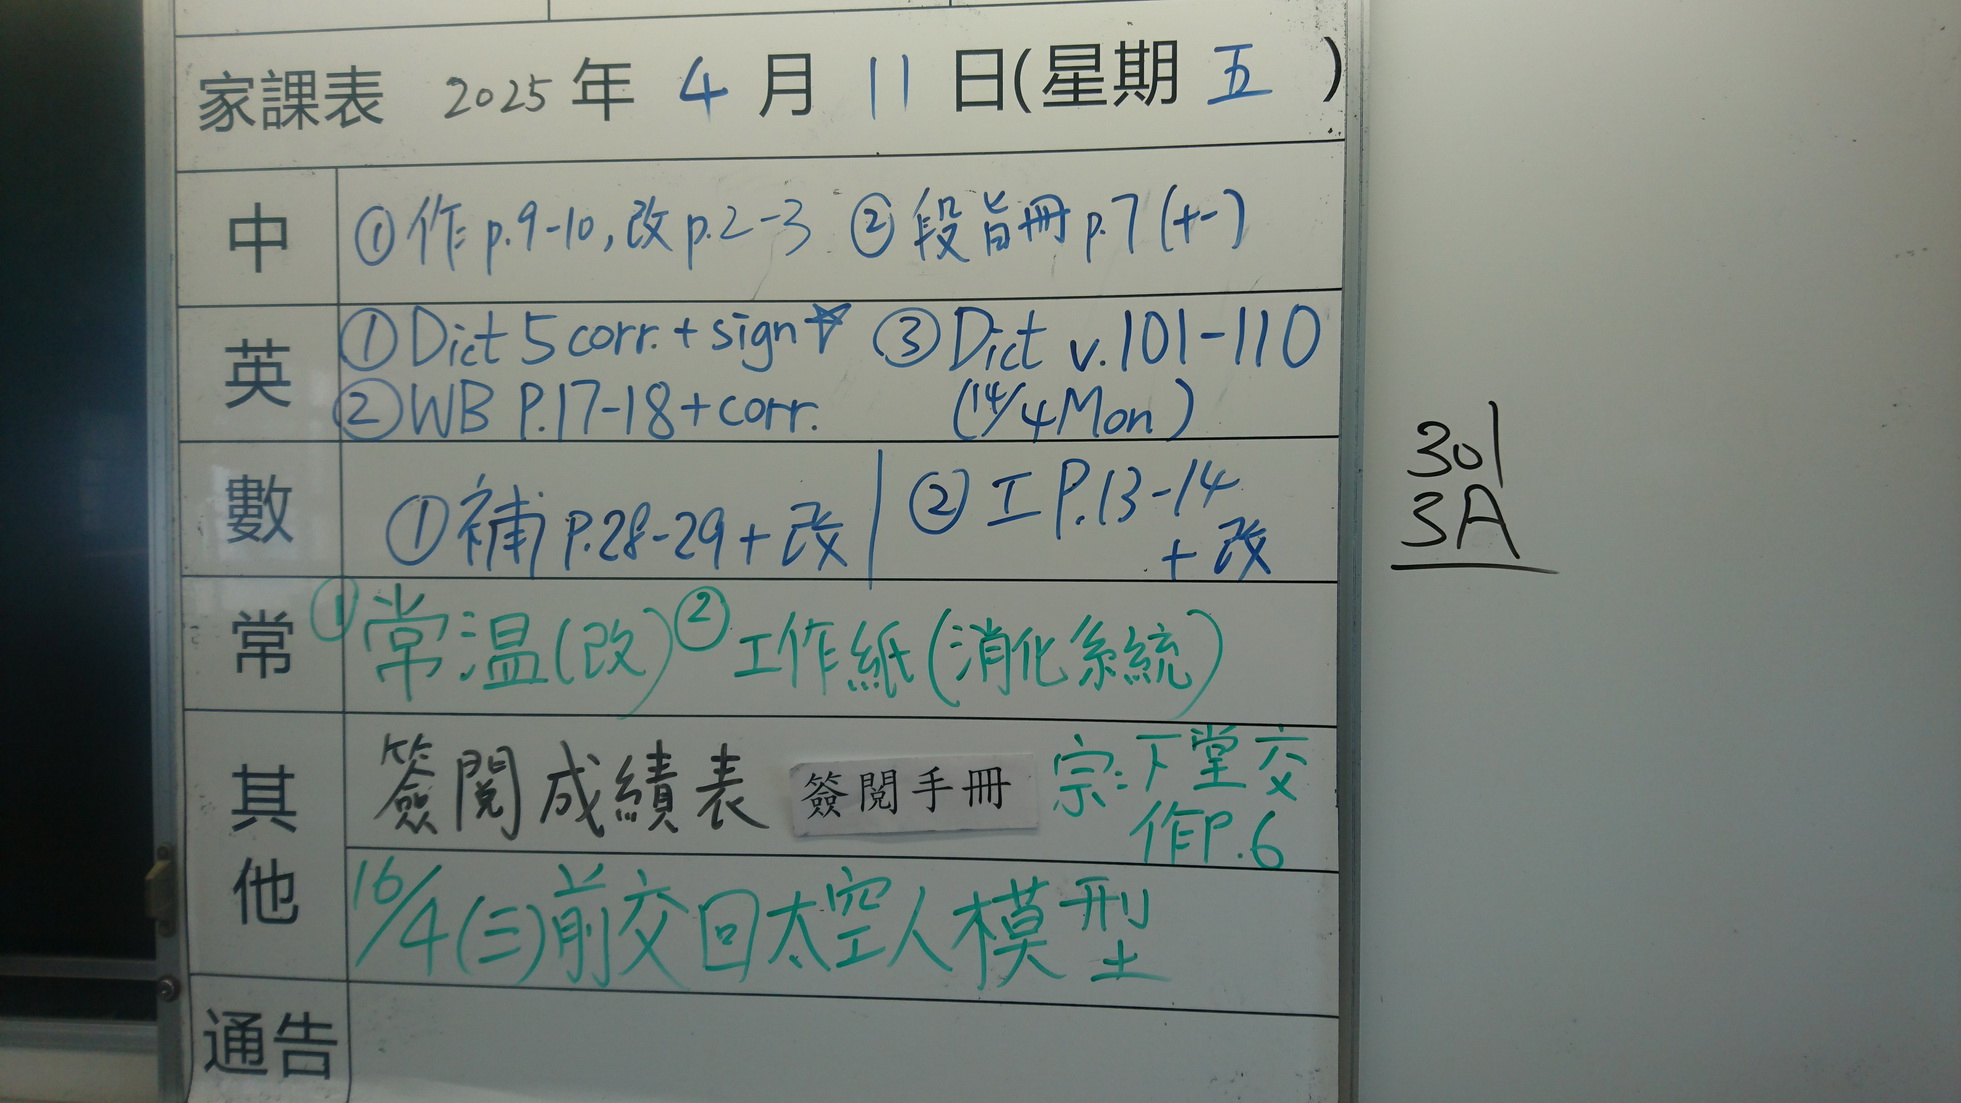 家課表 2025 年 4 月 11 日(星期 五 )
中 ①作 p.9-10, 改 p.2-3 ②段旨冊 p.7 (十一)
英 ①Dict 5 corr. + sign☆ ③Dict v.101-110
②WB P.17-18+corr. (14/4 Mon)
數 ①補 P.28-29 + 改 | ②工 P.13-14
+ 改
常 ①常温(改) ②工作紙(消化系統)
其他 簽閱成績表 簽閱手冊 宗:下堂交
作P.6
16/4(三)前交回太空人模型
通告
301
3A